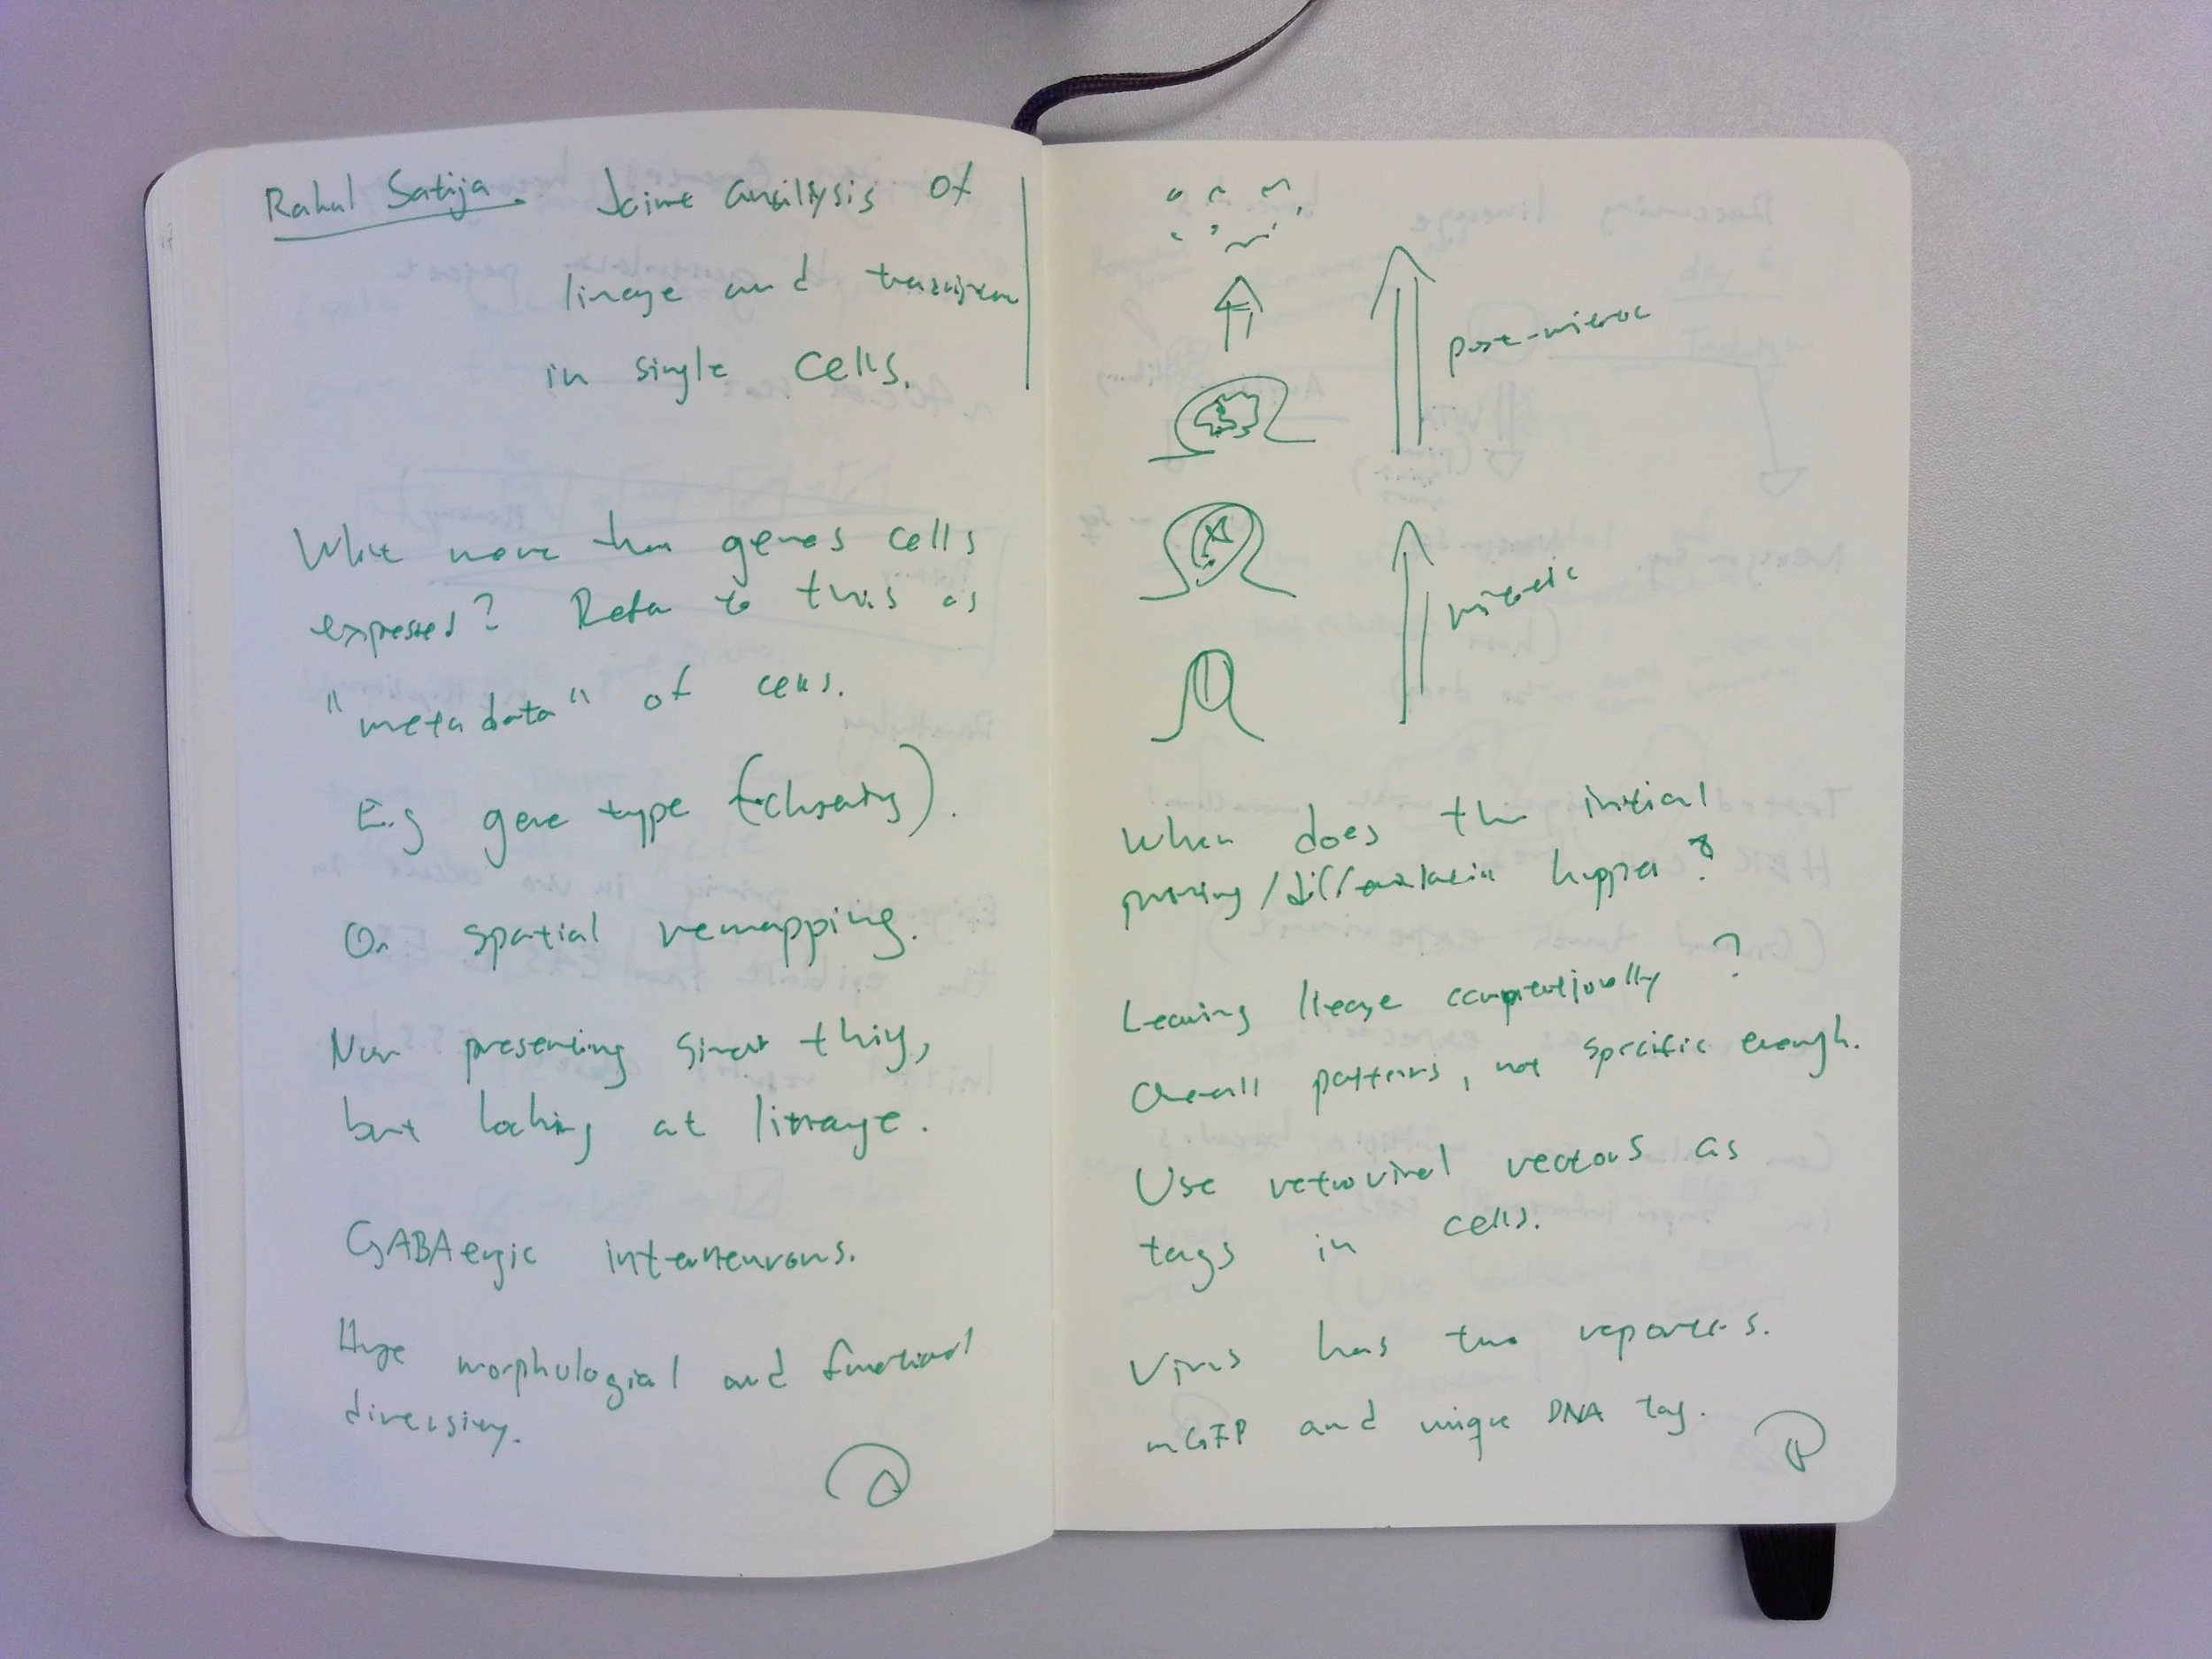 Rahul Satija. Joint analysis of
lineage and
in single cells.
What more than genes cells
expressed? Refer to this as
"meta data" of cells.
E.g gene type
Or spatial remapping.
Now presenting similar thing,
but looking at lineage.
GABAergic interneurons.
Huge morphological and functional
diversity.
post-mitotic
mitotic
When does the initial
priming/differentiation happen?
Learning lineage computationally?
Overall patterns, not specific enough.
Use retroviral vectors as
tags in cells.
Virus has two reporters.
mGFP and unique DNA tag.